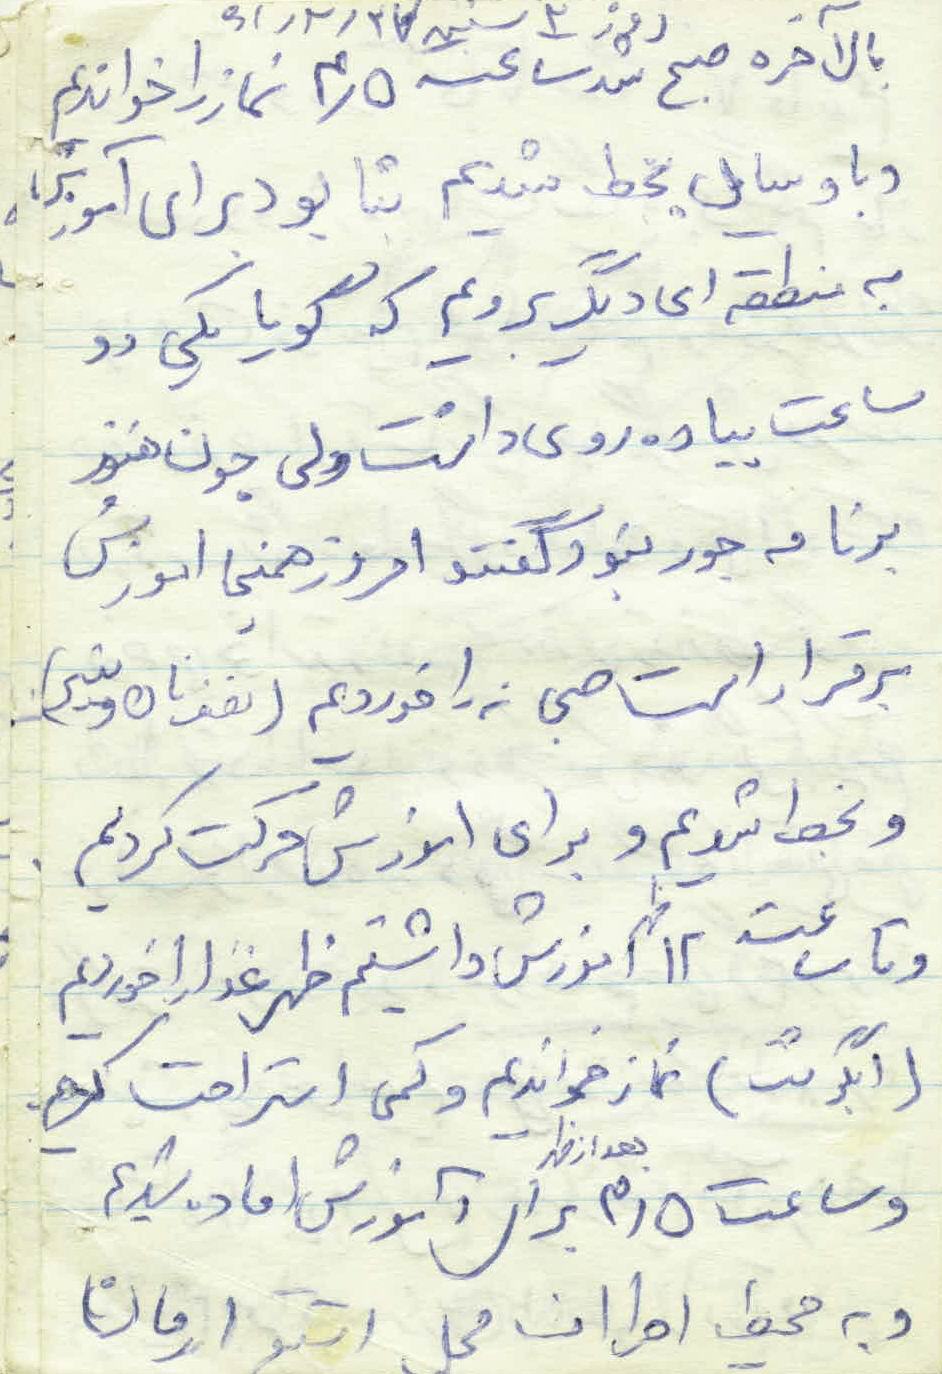 روز ۳ شنبه ۶۱/۲/۲۸
بالاخره صبح شد ساعت ۴/۵ نماز را خواندیم
و با وسایل بخط شدیم بنا بود برای آموزش
به منطقه ای دیگر برویم که گویا یکی دو
ساعت پیاده روی داشت ولی چون هنوز
برنامه جور نبود گفتند امروز همینجا اموزش
برقرار است صبحانه را خوردیم (نان و پنیر)
و بخط شدیم و برای اموزش حرکت کردیم
و تا ساعت ۱۲ ظهر آموزش داشتیم ظهر غذا را خوردیم
(ابگوشت) نماز خواندیم و کمی استراحت کردیم
و ساعت ۳/۵ بعد از ظهر برای آموزش اماده شدیم
و به محیط اطراف محل